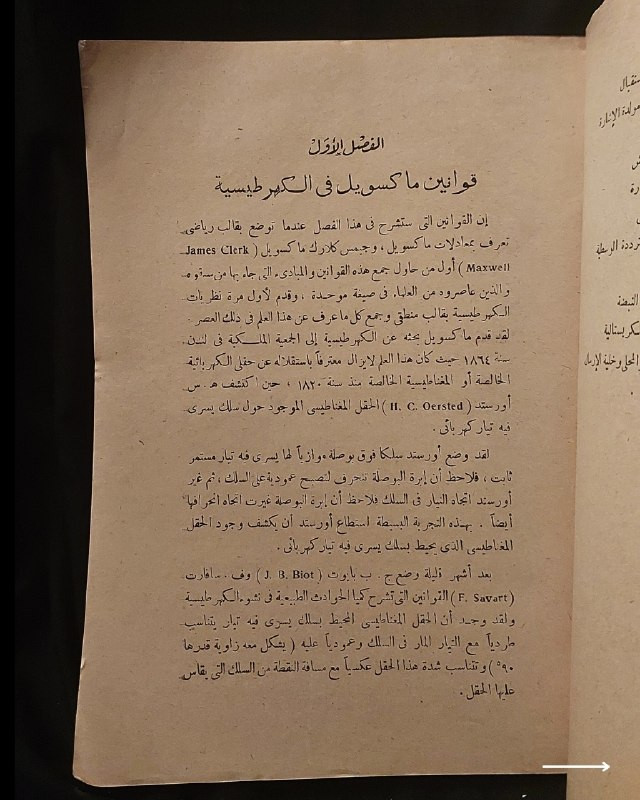 الفصل الأول
قوانين ماكسويل في الكهرطيسية
إن القوانين التي ستشرح في هذا الفصل عندما توضع بقالب رياضي
تعرف بمعادلات ماكسويل ، وجيمس كلارك ماكسويل ( James Clerk
Maxwell ) أول من حاول جمع هذه القوانين والمبادىء التي جاء بها من سبقوه
والذين عاصروه من العلماء في صيغة موحدة ، وقدم لأول مرة نظريات
الكهرطيسية بقالب منطقي وجمع كل ما عرف عن هذا العلم في ذلك العصر .
لقد قدم ماكسويل بحثه عن الكهرطيسية إلى الجمعية الملكية في لندن
سنة ١٨٦٤ حيث كان هذا العلم لايزال معترفاً باستقلاله عن حقلي الكهربائية
الخالصة أو المغناطيسية الخالصة منذ سنة ١٨٢٠ ، حين اكتشف ه . س
أورستد ( H. C. Oersted ) الحقل المغناطيسي الموجود حول سلك يسري
فيه تيار كهربائي .
لقد وضع أورستد سلكا فوق بوصلة موازياً لها يسري فيه تيار مستمر
ثابت ، فلاحظ أن إبرة البوصلة تنحرف لتصبح عمودية على السلك ، ثم غير
أورستد اتجاه التيار في السلك فلاحظ أن إبرة البوصلة غيرت اتجاه انحرافها
أيضاً . بهذه التجربة البسيطة استطاع أورستد أن يكشف وجود الحقل
المغناطيسي الذي يحيط بسلك يسري فيه تيار كهربائي .
بعد أشهر قليلة وضع ج . ب بايوت ( J. B. Biot ) وف . سافارت
( F. Savart ) القوانين التي تشرح كميا الحوادث الطبيعية في نشوء الكهرطيسية
ولقد وجد أن الحقل المغناطيسي المحيط بسلك يسري فيه تيار يتناسب
طردياً مع التيار المار في السلك وعمودياً عليه ( يشكل معه زاوية قدرها
٩٠° ) وتتناسب شدة هذا الحقل عكسياً مع مسافة النقطة من السلك التي يقاس
عليها الحقل .